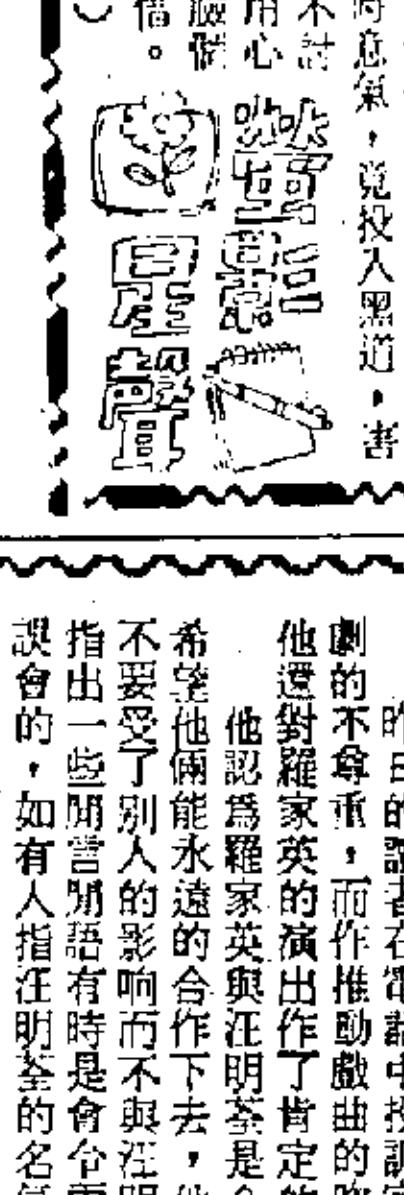 時意氣，竟投入黑道，害
不討
用心
臉個
借。
螢影
星聲
昨日的讀者在電話中投訴
劇的不尊重，而作推動戲曲的
他還對羅家英的演出作了肯定的
他認爲羅家英與汪明荃是
希望他倆能永遠的合作下去，他
不要受了別人的影响而不與汪明
指出一些閒言閒語有時是會令
誤會的，如有人指汪明荃的名氣